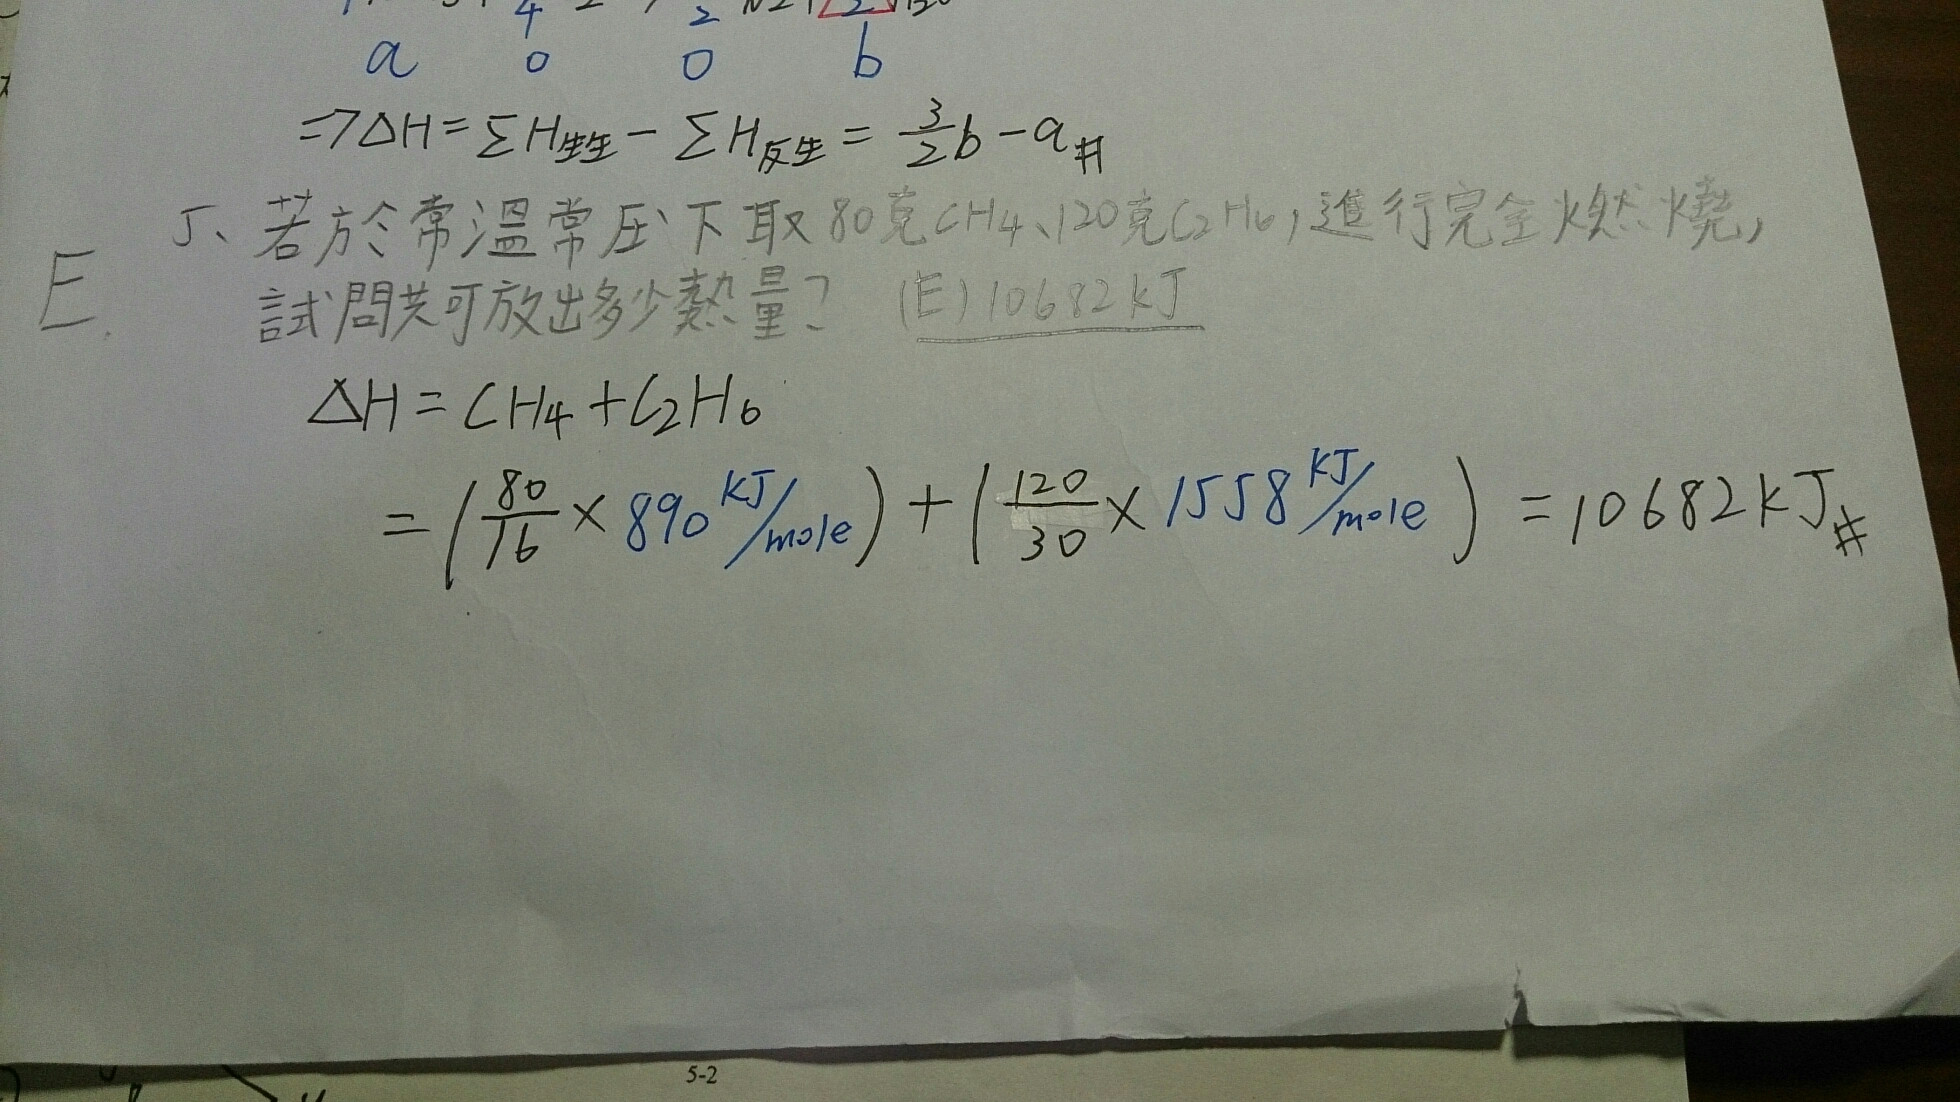 a 0 0 b
=>ΔH=ΣH生生-ΣH反生=3/2b-a#
5、若於常溫常压下取80克CH4、120克C2H6,進行完全燃燒,
E. 試問共可放出多少熱量? (E)10682kJ
ΔH=CH4+C2H6
=(80/16×890KJ/mole)+(120/30×1558KJ/mole)=10682kJ#
5-2